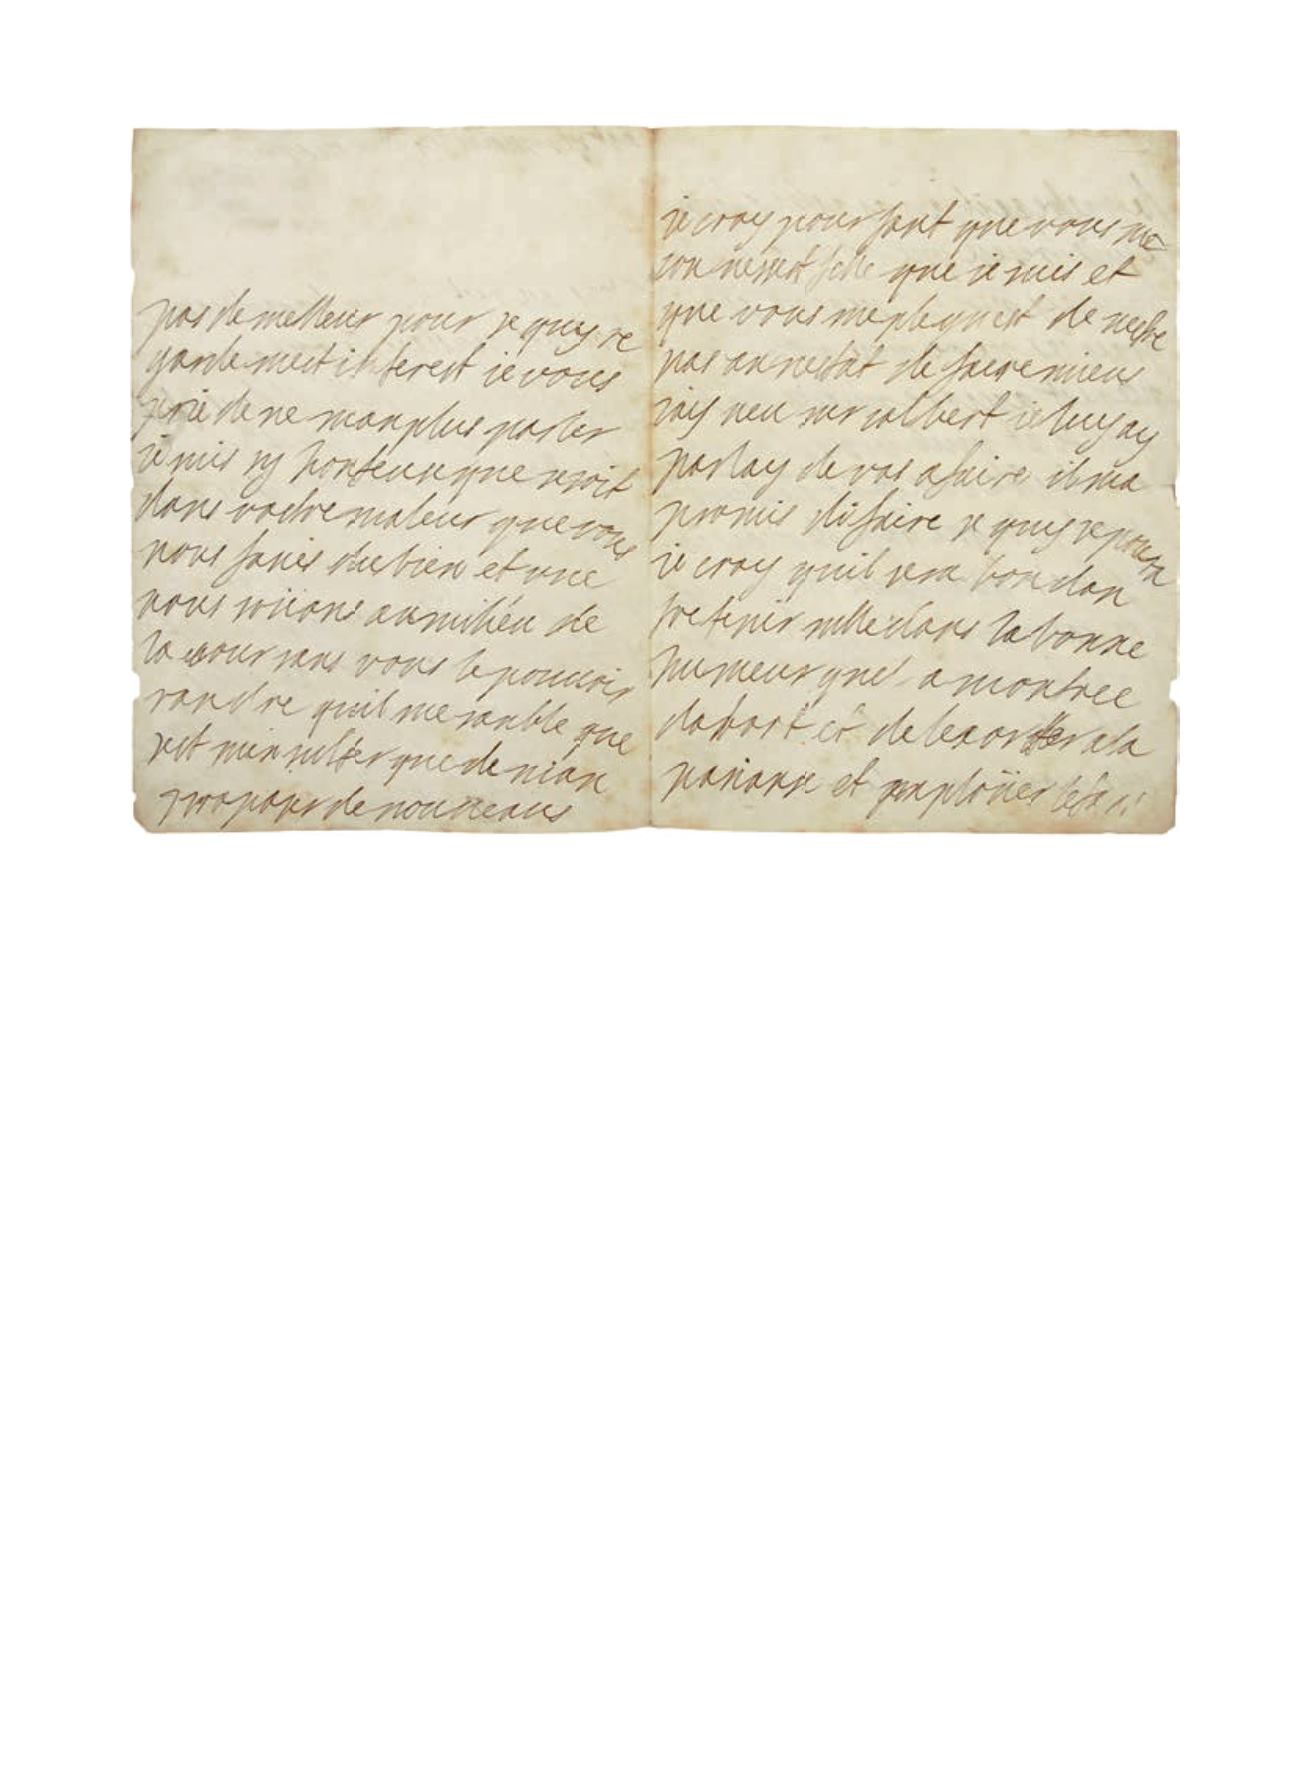 pas de melleur pour se quy re
garde mest interest ie vous
prie de ne man plus parler
ie suis sy honteuse que se soit
dans vostre maleur que vous
nous faries du bien et que
nous soiions au milieu de
la cour sans vous le pouuoir
randre quil me sanble que
set minsulter que de mian
proposer de nouueaus
ie croy pour tant que vous me
connessest telle que ie suis et
que vous me plegnest de nestre
pas an nestat de faire mieus
iay veu mr colbert ie luy ay
parlay de vos afaire il ma
promis di faire se quy se poura
ie croy quil sera bon dan
tretenir mlle dans la bonne
humeur quel a montree
dabort et de lexorter a la
pasianse et